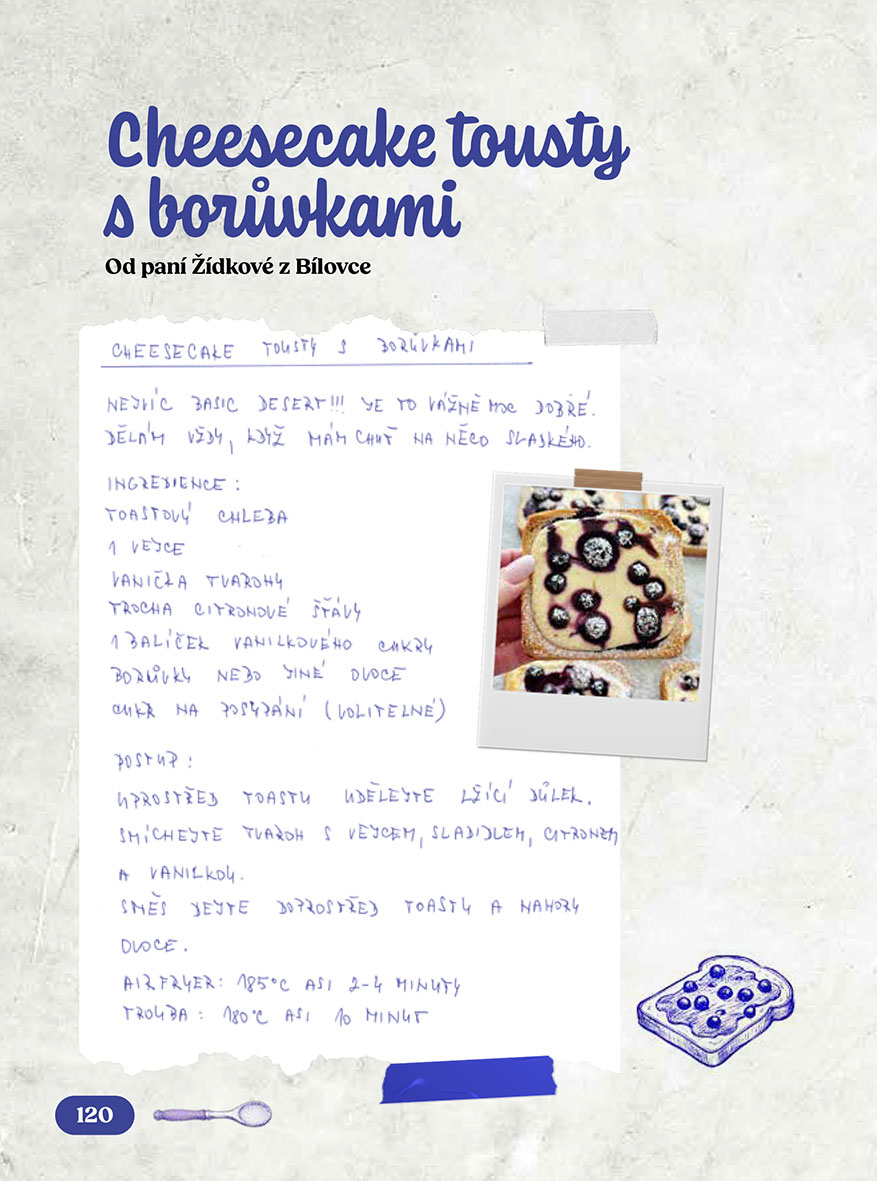 Cheesecake tousty
s borůvkami
Od paní Žídkové z Bílovce
CHEESECAKE TOUSTY S BORŮVKAMI
NEJVÍC BASIC DESERT!!! JE TO VÁŽNĚ MOC DOBŘÉ.
DĚLÁM VŽDY, KDYŽ MÁM CHUŤ NA NĚCO SLADKÉHO.
INGREDIENCE:
TOASTOVÝ CHLEBA
1 VEJCE
VANIČKA TVAROHU
TROCHA CITRONOVÉ ŠŤÁVY
1 BALÍČEK VANILKOVÉHO CUKRU
BORŮVKY NEBO JINÉ OVOCE
CUKR NA POSYPÁNÍ (VOLITELNÉ)
POSTUP:
UPROSTŘED TOASTU UDĚLEJTE LŽÍCÍ DŮLEK.
SMÍCHEJTE TVAROH S VEJCEM, SLADIDLEM, CITRONEM
A VANILKOU.
SMĚS DEJTE DOPROSTŘED TOASTU A NAHORU
OVOCE.
AIRFRYER: 185°C ASI 2-4 MINUTY
TROUBA: 180°C ASI 10 MINUT
120